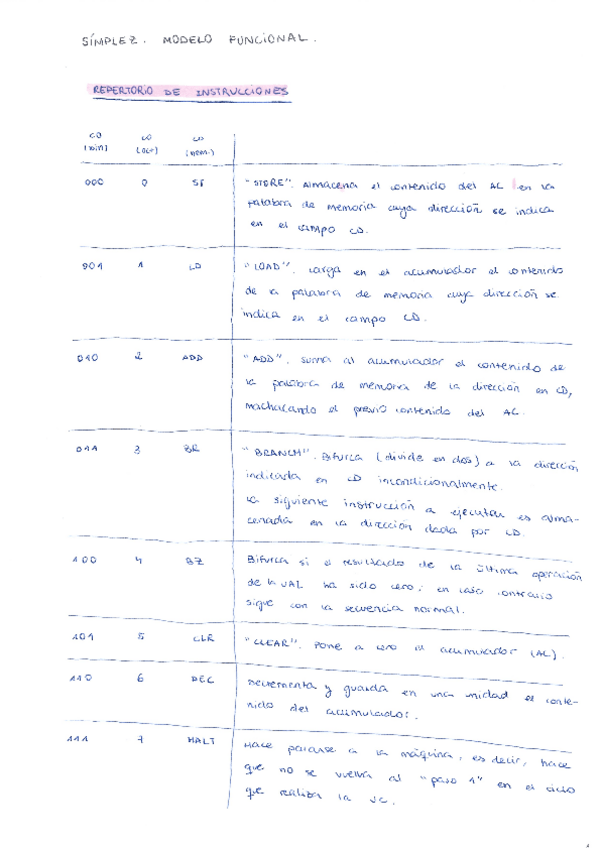 SÍMPLEZ. MODELO FUNCIONAL.
REPERTORIO DE INSTRUCCIONES
CO CO CO
(bin) (oct) (nem.)
000 0 ST "STORE". Almacena el contenido del AC en la
palabra de memoria cuya dirección se indica
en el campo CD.
001 1 LD "LOAD". Carga en el acumulador el contenido
de la palabra de memoria cuya dirección se
indica en el campo CD.
010 2 ADD "ADD". Suma al acumulador el contenido de
la palabra de memoria de la dirección en CD,
machacando el previo contenido del AC.
011 3 BR "BRANCH". Bifurca (divide en dos) a la dirección
indicada en CD incondicionalmente.
La siguiente instrucción a ejecutar es alma-
cenada en la dirección dada por CD.
100 4 BZ Bifurca si el resultado de la última operación
de la UAL ha sido cero; en caso contrario
sigue con la secuencia normal.
101 5 CLR "CLEAR". Pone a cero el acumulador (AC).
110 6 DEC Decrementa y guarda en una unidad el conte-
nido del acumulador.
111 7 HALT Hace pararse a la máquina, es decir, hace
que no se vuelva al "paso 1" en el ciclo
que realiza la UC.